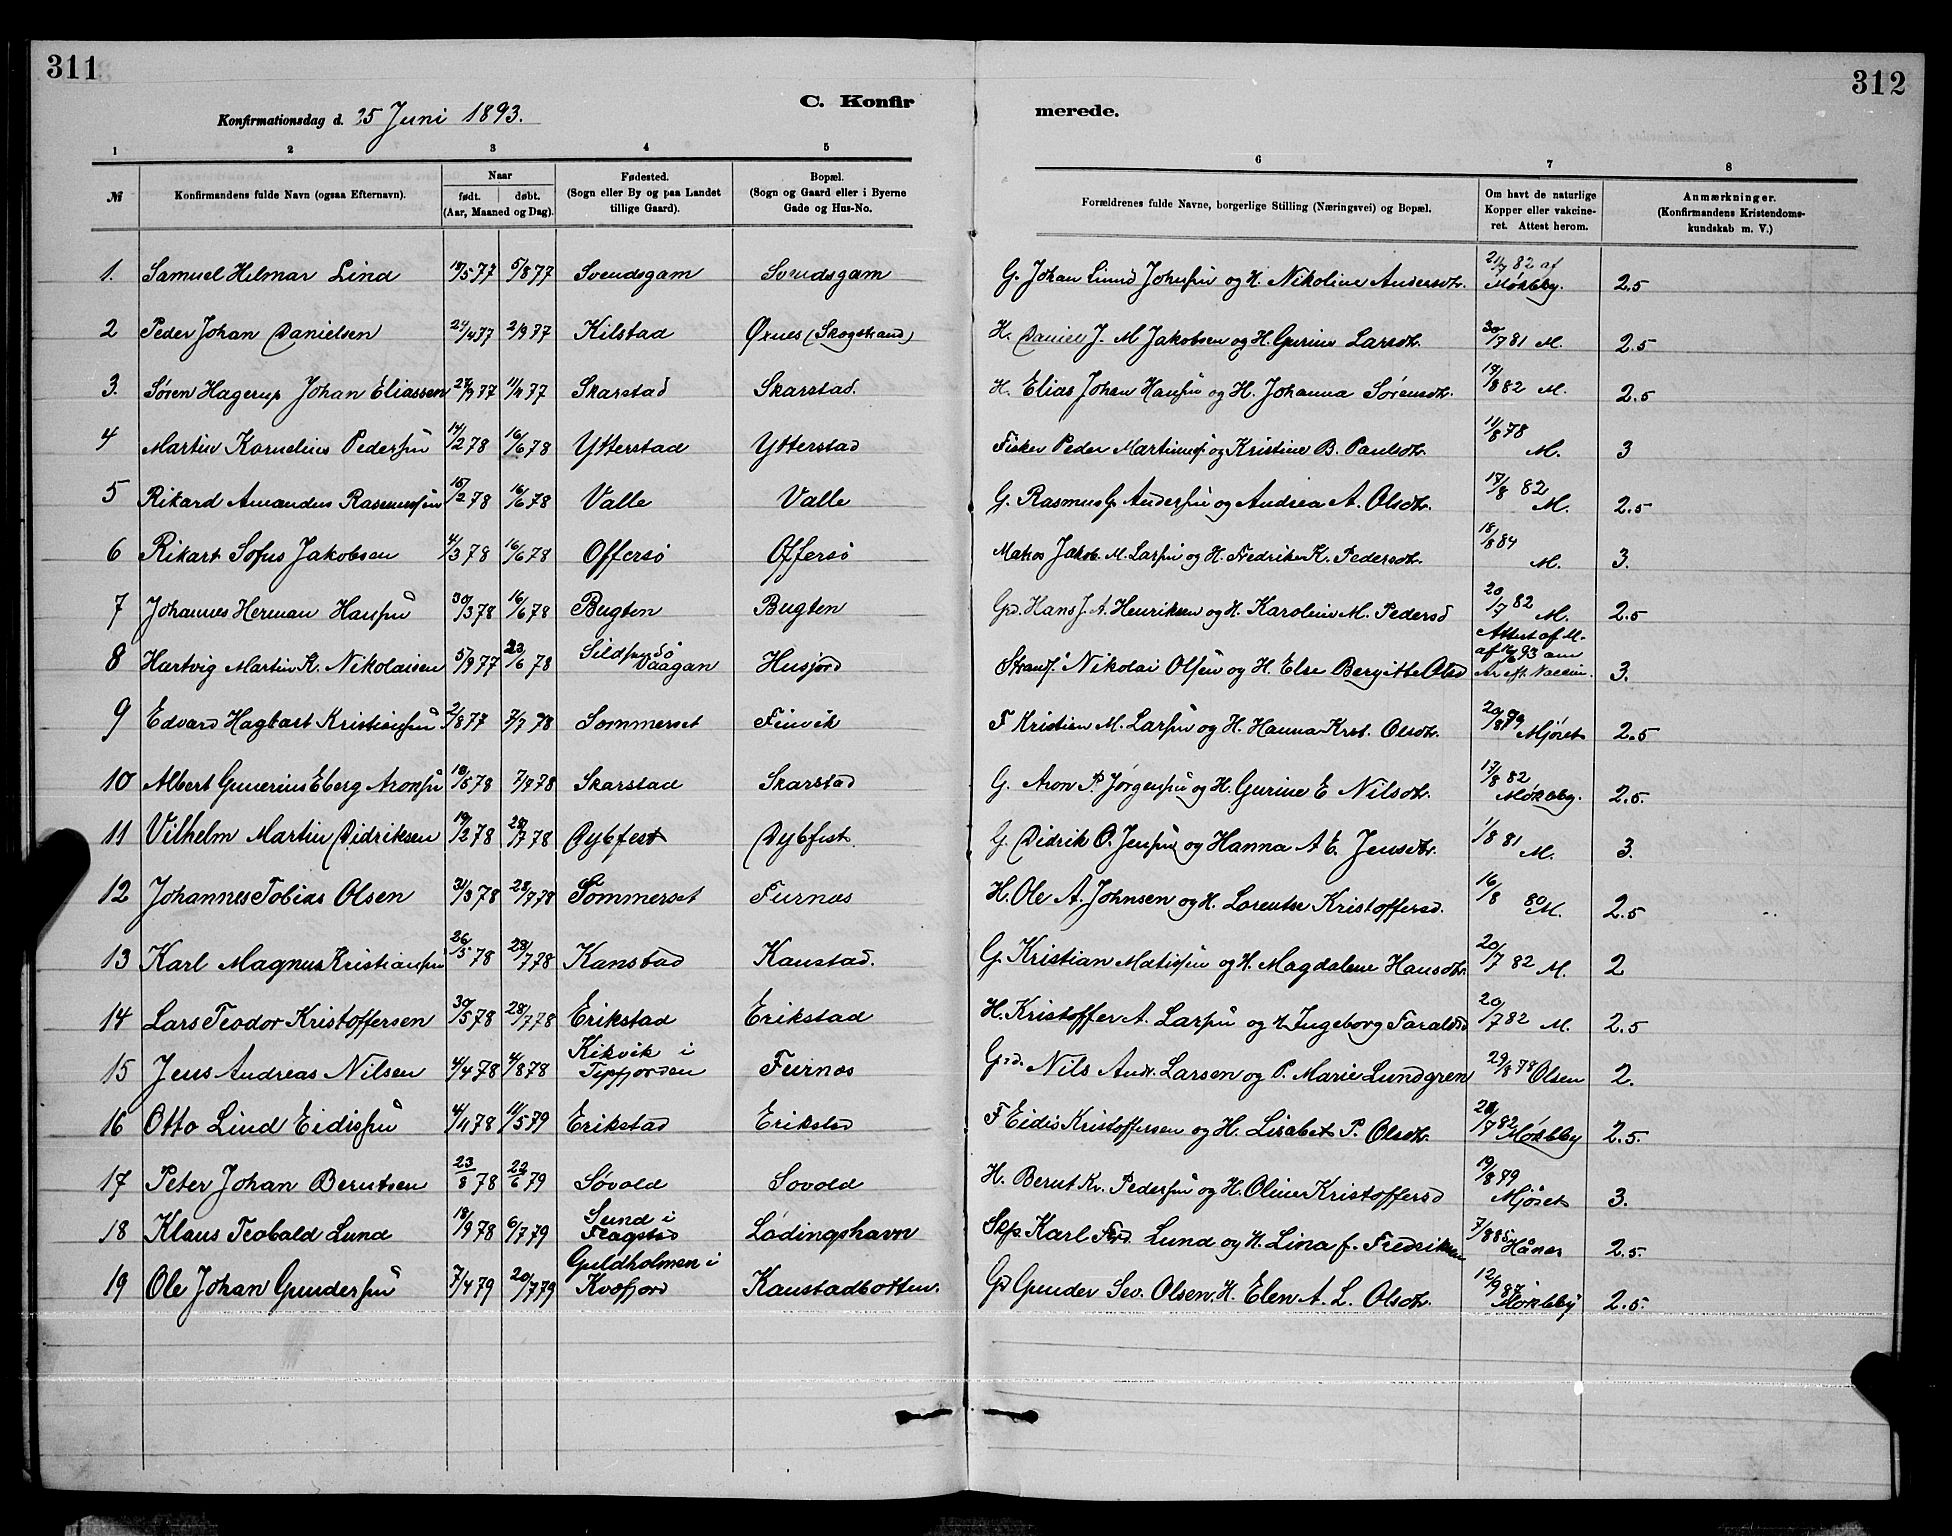 311
312
C. Konfirmerede.
Konfirmationsdag d. 25 Juni 1893.
1 2 3 4 5 6 7 8
№ Konfirmandens fulde Navn (ogsaa Efternavn). Naar født. døbt. (Aar, Maaned og Dag). Fødested. (Sogn eller By og paa Landet tillige Gaard). Bopæl. (Sogn og Gaard eller i Byerne Gade og Hus-No. Forældrenes fulde Navne, borgerlige Stilling (Næringsvei) og Bopæl. Om havt de naturlige Kopper eller vakcineret. Attest herom. Anmærkninger. (Konfirmandens Kristendomskundskab m. V.)
1. Samuel Hilmar Lind 5/8 77 Svendsgam Svendsgam G. Johan Lund Johnsen og H. Nikoline Andersdtr. 82 af Møkleby. 2.5
2 Peder Johan Danielsen 24/4 77 2/9 77 Kilstad Øxnes (Skogstrand) H. Daniel J. M Jakobsen og H. Gurine Larsdtr. 30/7 81 M. 2.5
3. Søren Hagerup Johan Eliassen 77 77 Skarstad Skarstad. H. Elias Johan Hansen og H. Johanna Sørensdtr. 18/8 82 M. 2.5
4 Martin Kornelius Pedersen 14/2 78 16/6 78 Ytterstad Ytterstad Fisker Peder Martinus. og Kristine B. Paulsdtr. 11/8 78 M. 3
5 Rikard Amandus Rasmussen 15/2 78 16/6 78 Valle Valle G. Rasmus G. Andersen og Andrea A. Olsdtr. 17/8 82 M. 2.5
6 Rikart Sofus Jakobsen 4/3 78 16/6 78 Offersø Offersø Jakob M. Larsen og H. Fredrikke K. Pedersdtr. 18/8 84 M. 3.
7 Johannes Herman Hansen 30/3 78 16/6 78 Bugten Bugten Gd. Hans J. A. Henriksen og H. Karoline M. Pedersd 20/7 82 M. 2.5
8 Hartvig Martin K. Nikolaisen 5/9 77 23/6 78 Vaagan Husjord Strands. Nikolai Olsen og H. Else Bergitte Olsd Attest af M. af 93 om 3.
9 Edvard Hagbart Kristiansen 2/8 77 7/7 78 Sommerset Finvik F Kristian M. Larsen og H. Hanna Krst. Olsdtr. 20/8 79 Mjöset 2.5
10 Albert Gunerius Eberg Aronsen 18/5 78 7/7 78 Skarstad Skarstad G. Aron P. Jørgensen og H. Gurine E Nilsdtr. 17/8 82 Møkleby. 2.5.
11 Vilhelm Martin Didriksen 19/2 78 28/7 78 Dybfest Dybfest. G. Didrik O. Jensen og Hanna A E. Jensdtr. 1/8 81 M. 3.
12 Johannes Tobias Olsen 31/3 78 28/7 78 Sommerset Furnes H. Ole A. Johnsen og H. Lorentse Kristoffersd. 16/8 80 M. 2.5
13 Karl Magnus Kristiansen 26/5 78 28/7 78 Kanstad Kanstad. G. Kristian Matisen og H. Magdalene Hansdtr. 20/7 82 M. 2
14 Lars Teodor Kristoffersen 30/5 78 28/7 78 Erikstad Erikstad H. Kristoffer A. Larsen og H Ingeborg Faraldsd 20/7 82 M. 2.5
15 Jens Andreas Nilsen 4/4 78 4/8 78 Kikvik i Tysfjorden Furnes Gd. Nils Andr. Larsen og P. Marie Lundgren 29/8 78 Olsen 2.
16 Otto Lind Eidissen 4/11 78 11/5 79 Erikstad Erikstad F Eidis Kristoffersen og H. Lisabet P. Olsdtr. 82 Møkleby 2.5.
17 Peter Johan Berntsen 23/8 78 22/6 79 Søvold Sovold H. Bernt Kr. Pedersen og H. Oline Kristoffersd 19/8 79 Mjöset 3.
18 Klaus Teobald Lund 18/9 78 6/7 79 Sund i Flagstad Lödingshavn Karl Ferd. Lund og H. Lina f. Fredriksen 7/8 85 2.5.
19 Ole Johan Gundersen 7/4 79 20/7 79 Guldholmen i Kvæfjord Kanstadbotten. Gd Gunder Sev. Olsen, H. Elen A. L. Olsdtr. 12/9 87 Møkleby 2.5.